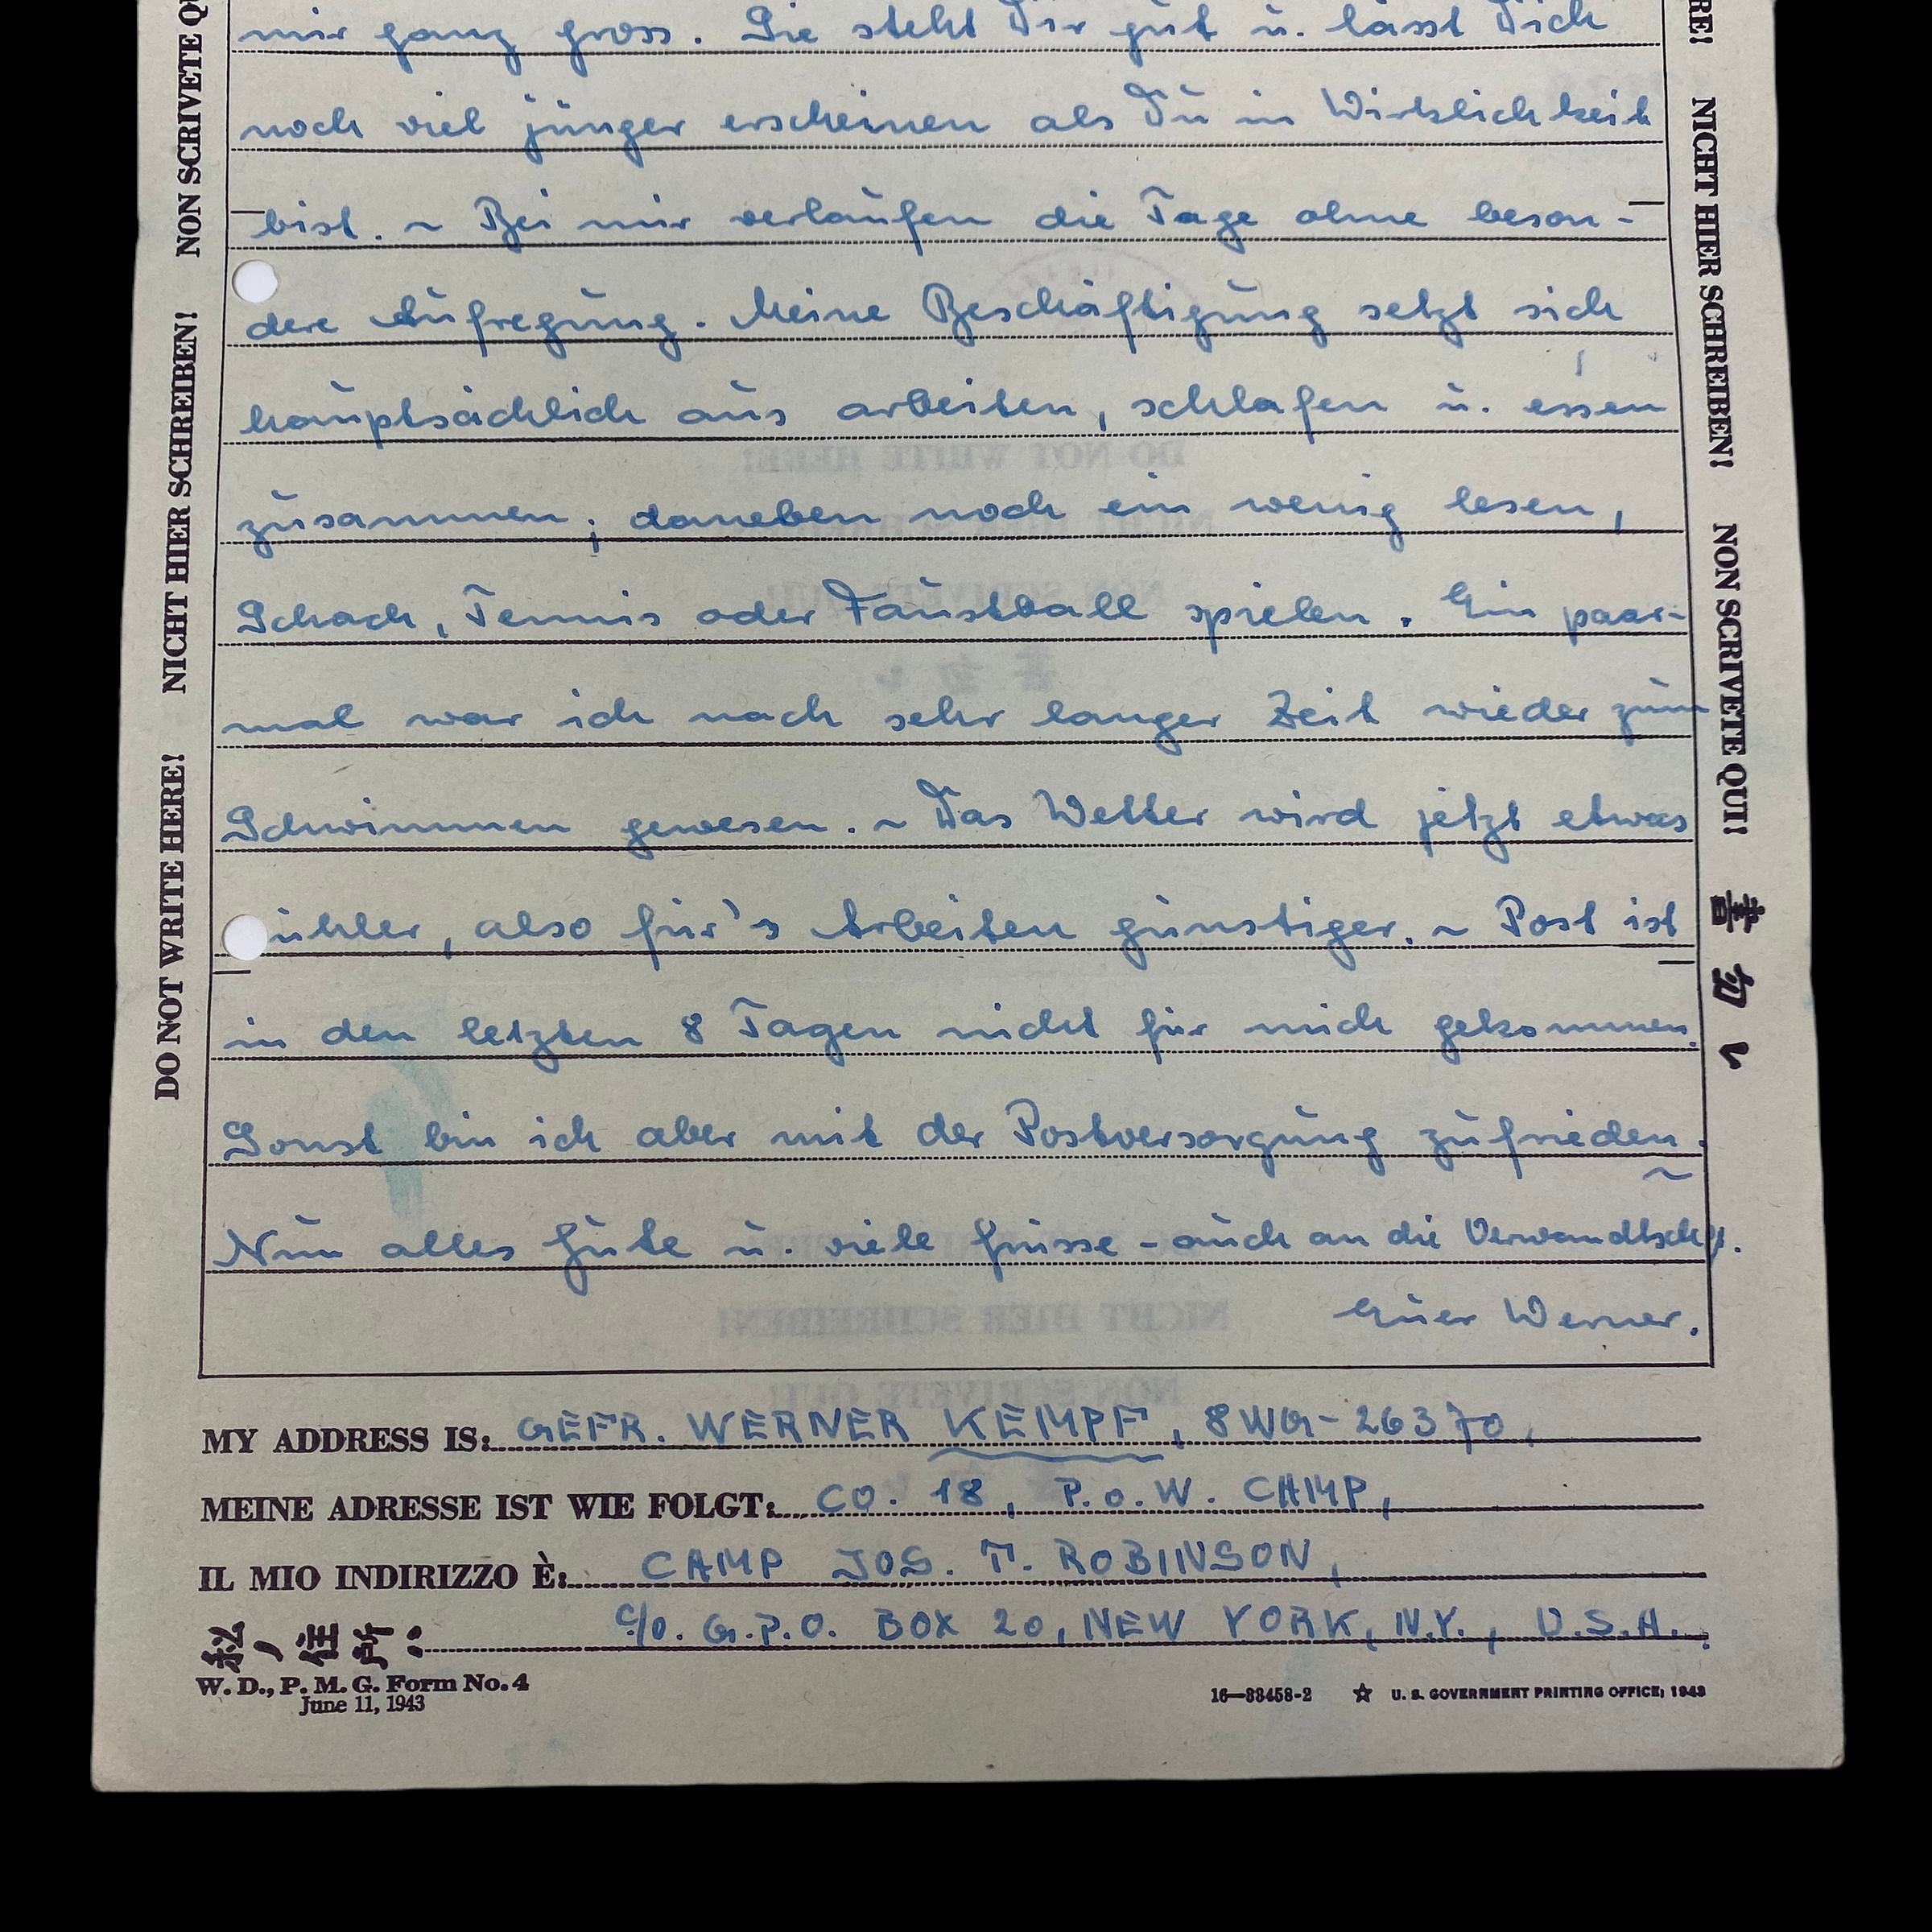 mir ganz gross. Sie steht Dir gut u. lässt Dich
noch viel jünger erscheinen als Du in Wirklichkeit
bist. ~ Bei mir verlaufen die Tage ohne beson-
dere Aufregung. Meine Beschäftigung setzt sich
hauptsächlich aus arbeiten, schlafen u. essen
zusammen; daneben noch ein wenig lesen,
Schach, Tennis oder Faustball spielen. Ein paar-
mal war ich nach sehr langer Zeit wieder zum
Schwimmen gewesen. ~ Das Wetter wird jetzt etwas
ühler, also für's Arbeiten günstiger. ~ Post ist
in den letzten 8 Tagen nicht für mich gekommen.
Sonst bin ich aber mit der Postversorgung zufrieden. ~
Nun alles Gute u. viele Grüsse - auch an die Verwandtsch.
Euer Werner.
MY ADDRESS IS: GEFR. WERNER KEMPF, 8WG-26370,
MEINE ADRESSE IST WIE FOLGT: CO. 18, P.o.W. CAMP,
IL MIO INDIRIZZO È: CAMP JOS. T. ROBINSON,
私ノ住所: c/o. G.P.O. BOX 20, NEW YORK, N.Y., U.S.A.
W. D., P. M. G. Form No. 4
June 11, 1943
16—33458-2 ☆ U. S. GOVERNMENT PRINTING OFFICE: 1943
DO NOT WRITE HERE! NICHT HIER SCHREIBEN! NON SCRIVETE QU
RE! NICHT HIER SCHREIBEN! NON SCRIVETE QUI! 書クナ
DO NOT WRITE HERE!
NICHT HIER SCHREIBEN!
NON SCRIVETE QUI!